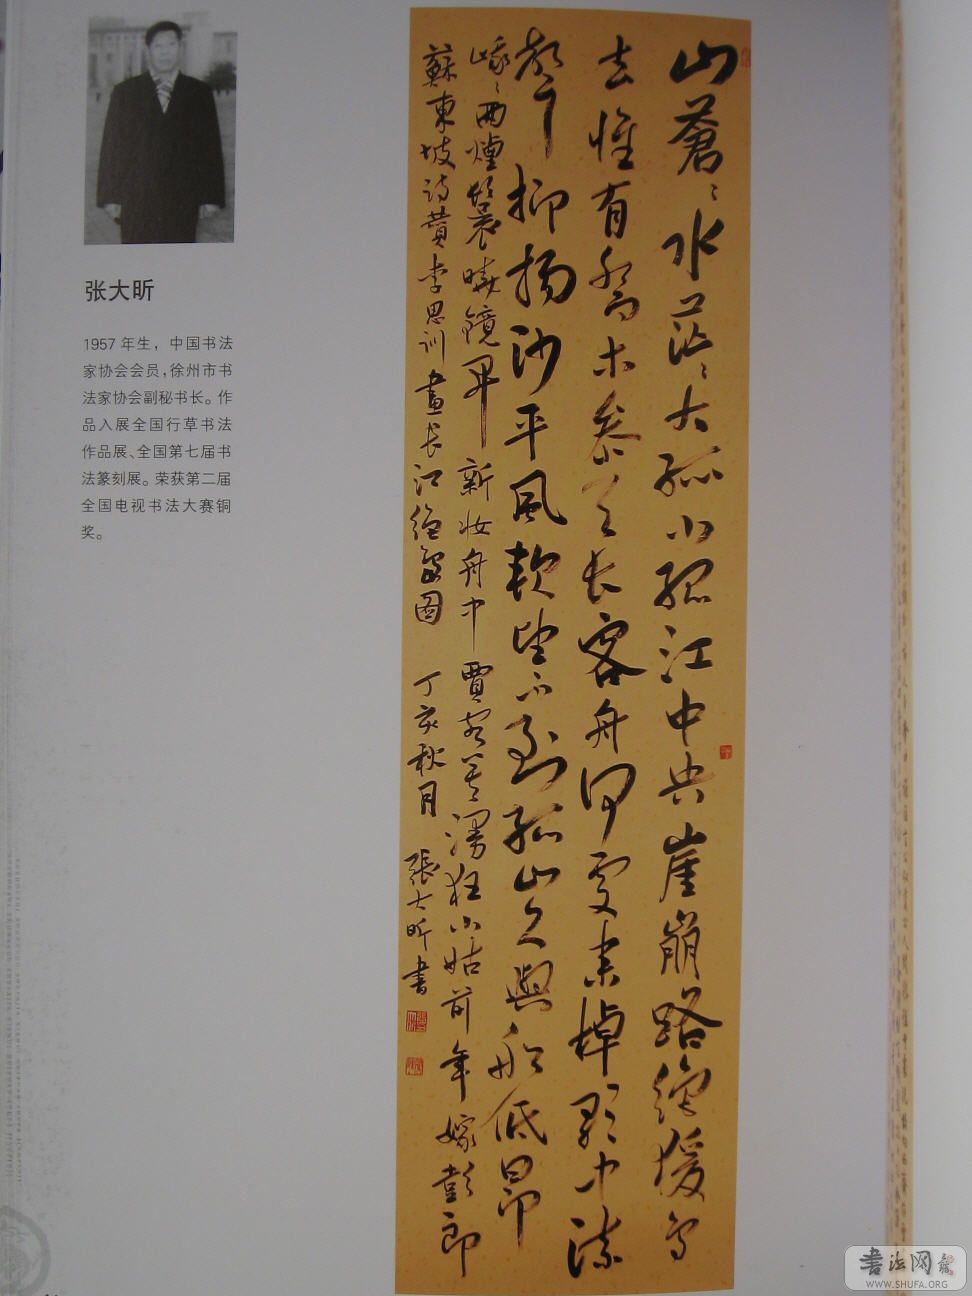 张大昕
1957年生，中国书法
家协会会员，徐州市书
法家协会副秘书长。作
品入展全国行草书法
作品展、全国第七届书
法篆刻展。荣获第二届
全国电视书法大赛铜
奖。
山蒼〻水茫〻大孤小孤江中央崖崩路絶猿鸟
去惟有喬木参天长客舟何處来棹歌中流
聲抑揚沙平風軟望不到孤山久與船低昂
峨〻兩煙鬟曉鏡開新妝舟中賈客莫漫狂小姑前年嫁彭郎
蘇東坡詩贊李思训畫长江絶島图 丁亥秋月 張大昕書
書法网
WWW.SHUFA.ORG